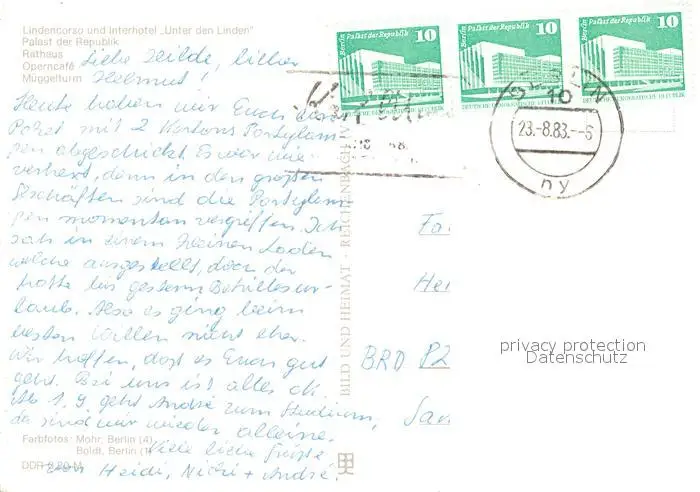 Lindencorso und Interhotel „Unter den Linden"
Palast der Republik
Rathaus
Operncafé
Müggelturm
Liebe Hilde, lieber
Helmut!
Heute haben wir Euch das
Paket mit 2 Kartons Partylam-
pen abgeschickt. Es war wie
verhext, denn in den großen
Geschäften sind die Partylam-
pen momentan vergriffen. Ich
sah in einem kleinen Laden
welche ausgestellt, doch der
hatte bis gestern Betriebsur-
laub. Also es ging beim
besten Willen nicht eher.
Wir hoffen, daß es Euch gut
geht. Bei uns ist alles ok.
Ab 1.9. geht André zum Studium,
da sind wir wieder alleine.
Viele liebe Grüße
von Heidi, Nicki + André.
Farbfotos: Mohr, Berlin (4)
Boldt, Berlin (1)
DDR 0,80 M
BILD UND HEIMAT · REICHENBACH
Berlin Palast der Republik 10
DEUTSCHE DEMOKRATISCHE REPUBLIK
Berlin Palast der Republik 10
DEUTSCHE DEMOKRATISCHE REPUBLIK
Berlin Palast der Republik 10
DEUTSCHE DEMOKRATISCHE REPUBLIK
BERLIN
10
23.-8.83.--6
ny
Fa
Hei
BRD P2
privacy protection
Datenschutz